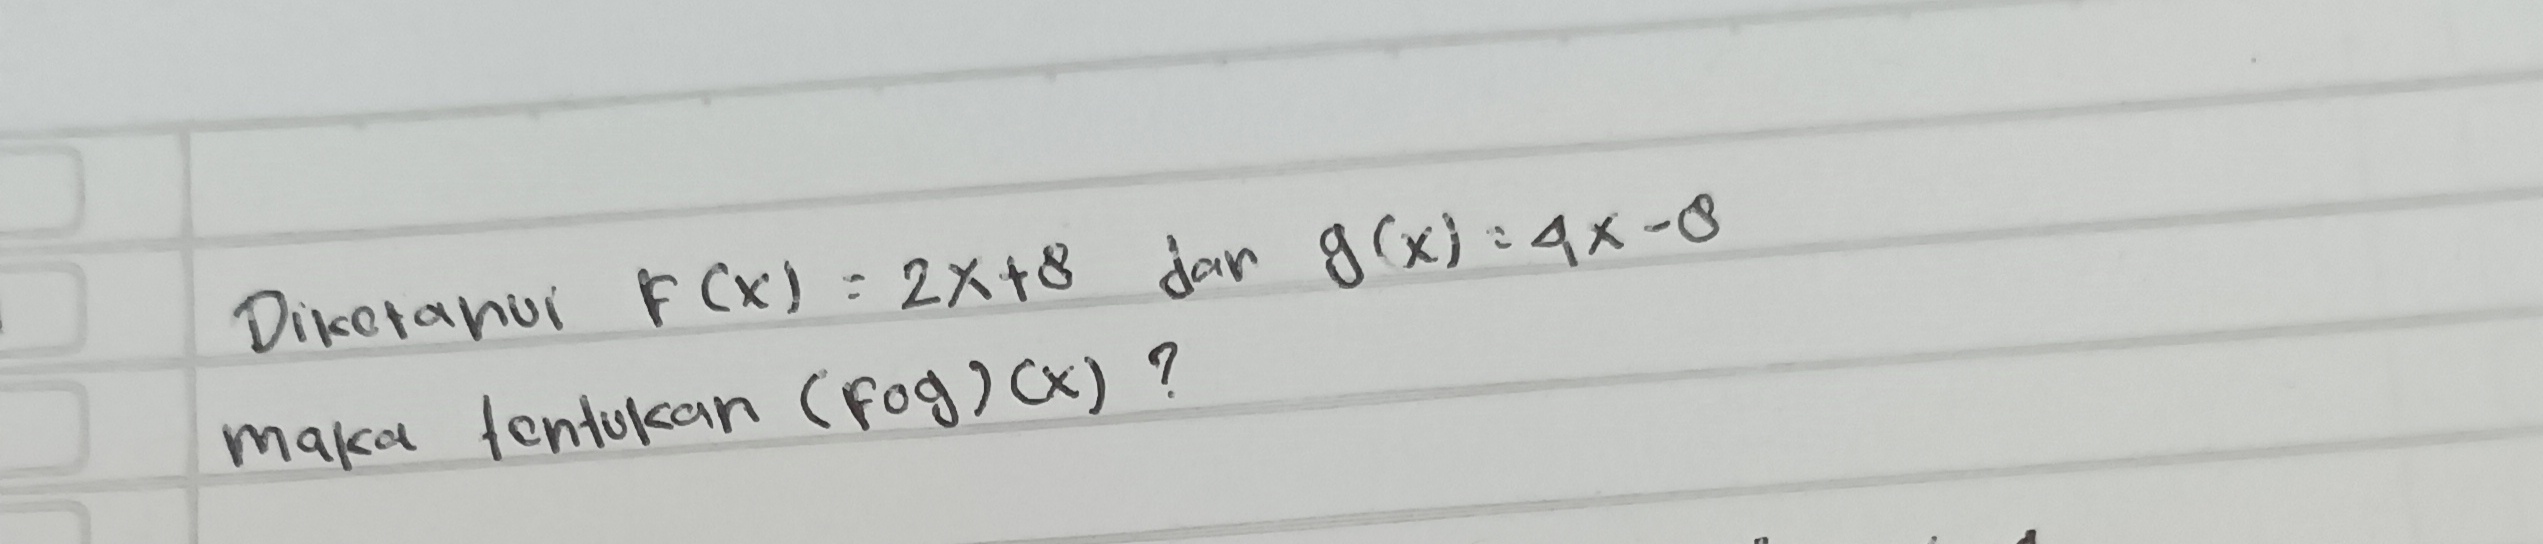 Diketahui F(x) = 2x+8 dan g(x) = 4x-8
maka tentukan (Fog)(x) ?